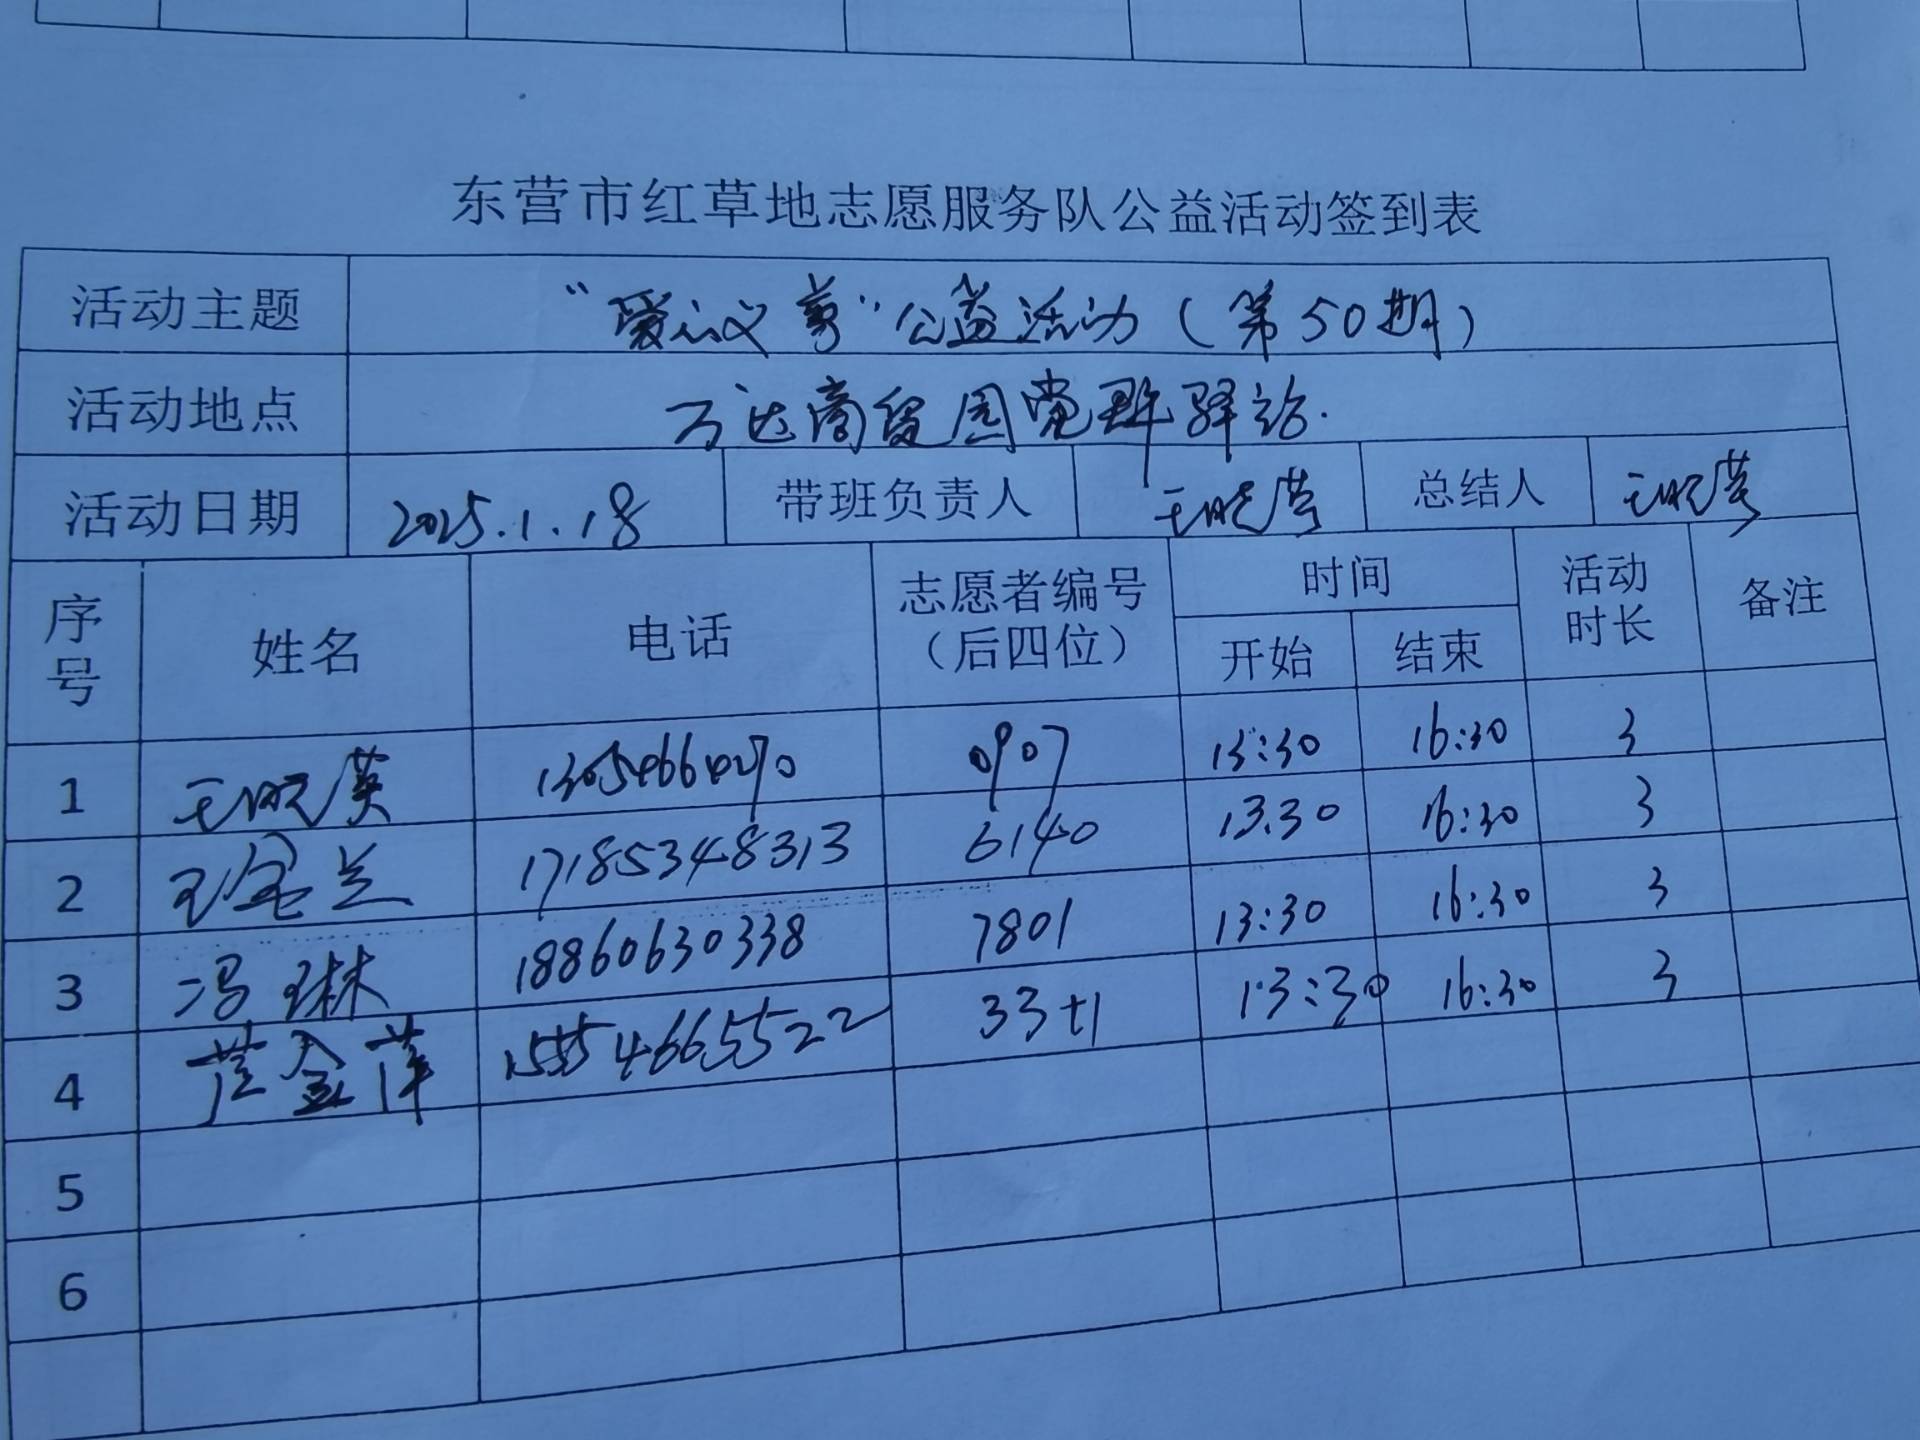 东营市红草地志愿服务队公益活动签到表
活动主题 “爱心义剪”公益活动(第50期)
活动地点 万达商贸园党群驿站.
活动日期 2025.1.18 带班负责人 王晓英 总结人 王晓英
序号 姓名 电话 志愿者编号(后四位) 时间 开始 结束 活动时长 备注
1 王晓英 0907 13:30 16:30 3
2 17185348313 6140 13.30 16:30 3
3 冯琳 18860630338 7801 13:30 16:30 3
4 金萍 15546655522 13:30 16:30 3
5
6